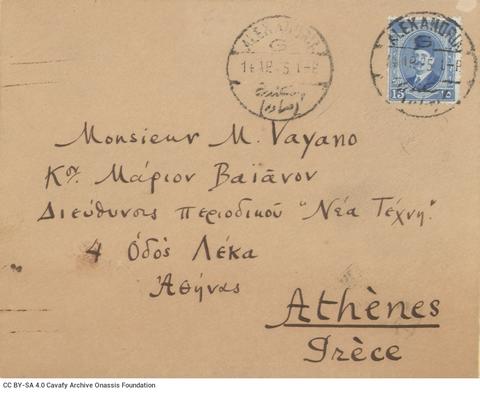 ALEXANDRIA
G
ALEXANDRIA
G
15
Monsieur M. Vayano
Κον. Μάριον Βαϊάνον
Διεύθυνσις περιοδικού "Νέα Τέχνη"
4 Οδός Λέκα
Αθήνας
Athènes
Grèce
CC BY-SA 4.0 Cavafy Archive Onassis Foundation